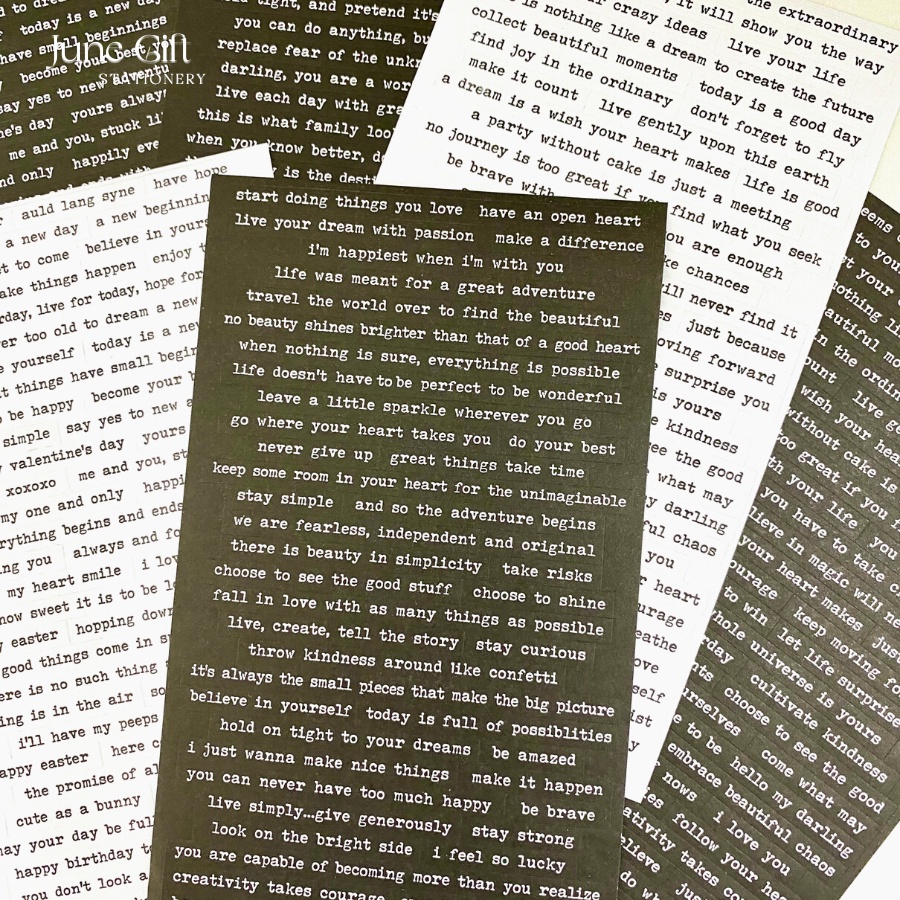 June Gift
STATIONERY
today is a new day
have small beginnings
become your best
say yes to new adventu
day yours always
me and you, stuck li
and only happily eve
tight, and pretend it's
you can do anything, bu
replace fear of the unkn
darling, you are a wor
live each day with gra
this is what family loo
when you know better, d
is the desti
the extraordinary
it will show you the way
crazy ideas live your life
is nothing like a dream to create the future
collect beautiful moments today is a good day
find joy in the ordinary don't forget to fly
make it count live gently upon this earth
a dream is a wish your heart makes life is good
a party without cake is just a meeting
no journey is too great if you find what you seek
be brave with you are enough
take chances
will never find it
just because
moving forward
surprise you
is yours
kindness
see the good
what may
my darling
ful chaos
you
heart
urage
eathe
love
self
auld lang syne have hope
a new day a new beginning
to come believe in yours
make things happen enjoy t
day, live for today, hope for
ver too old to dream a new
yourself today is a new
t things have small begin
be happy become your b
simple say yes to new a
valentine's day yours
xoxoxo me and you, st
my one and only happi
rything begins and ends
ing you always and fo
my heart smile i lov
now sweet it is to be lo
easter hopping down
good things come in s
ere is no such thing
ing is in the air so
i'll have my peeps
appy easter here c
the promise of al
cute as a bunny
may your day be ful
happy birthday to
you don't look a
start doing things you love have an open heart
live your dream with passion make a difference
i'm happiest when i'm with you
life was meant for a great adventure
travel the world over to find the beautiful
no beauty shines brighter than that of a good heart
when nothing is sure, everything is possible
life doesn't have to be perfect to be wonderful
leave a little sparkle wherever you go
go where your heart takes you do your best
never give up great things take time
keep some room in your heart for the unimaginable
stay simple and so the adventure begins
we are fearless, independent and original
there is beauty in simplicity take risks
choose to see the good stuff choose to shine
fall in love with as many things as possible
live, create, tell the story stay curious
throw kindness around like confetti
it's always the small pieces that make the big picture
believe in yourself today is full of possiblities
hold on tight to your dreams be amazed
i just wanna make nice things make it happen
you can never have too much happy be brave
live simply...give generously stay strong
look on the bright side i feel so lucky
you are capable of becoming more than you realize
creativity takes courage
to you
nothing li
autiful mo
in the ordin
ount live ge
wish your hea
without cake is
too great if you f
th your life you
you have to take c
lieve in magic will ne
your heart makes jus
ourage keep moving fo
to win let life surprise
whole universe is yours
rday cultivate kindness
nts choose to see the good
urselves come what may
to be hello my darling
embrace beautiful chaos
knows i love you
ies follow your hea
ativity takes cou
elieve just
do wh